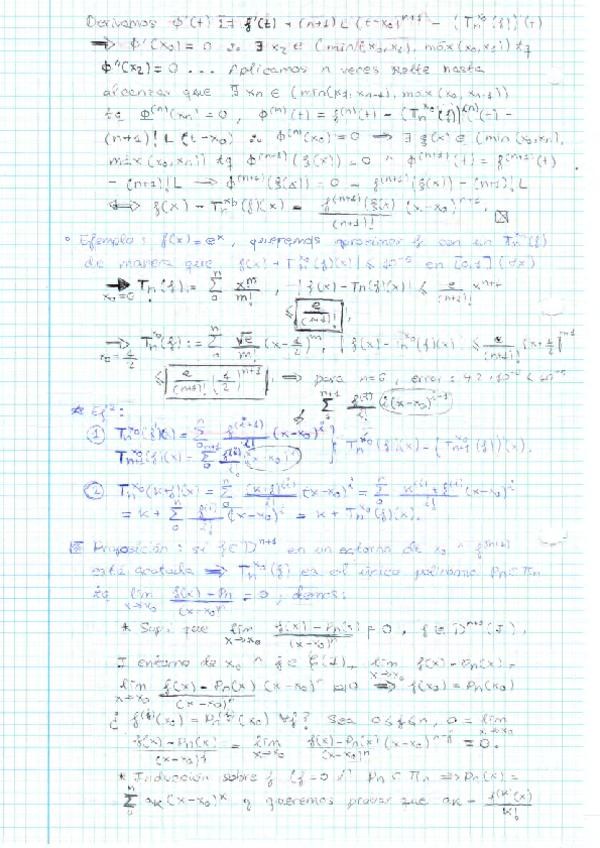 Derivamos φ'(t) = f'(t) + (n+1) L (t-x₀)ⁿ⁺¹ - (Tₙˣ⁰(f))'(t)
⇒ φ'(x₀) = 0 ∴ ∃ x₂ ∈ (min(x₀,x₁), máx(x₀,x₁)) tq
φ''(x₂) = 0 ... Aplicamos n veces Rolle hasta
alcanzar que ∃ xₙ ∈ (min(x₀, xₙ₋₁), max(x₀, xₙ₋₁))
tq φ⁽ⁿ⁾(xₙ) = 0, φ⁽ⁿ⁾(t) = f⁽ⁿ⁾(t) - (Tₙˣ⁰(f))⁽ⁿ⁾(t) -
(n+1)! L (t-x₀) ∴ φ⁽ⁿ⁾(x₀) = 0 ⇒ ∃ ξ(x) ∈ (min(x₀,xₙ),
máx(x₀,xₙ)) tq φ⁽ⁿ⁺¹⁾(ξ(x)) = 0 ∧ φ⁽ⁿ⁺¹⁾(t) = f⁽ⁿ⁺¹⁾(t)
- (n+1)! L → φ⁽ⁿ⁺¹⁾(ξ(x)) = 0 = f⁽ⁿ⁺¹⁾(ξ(x)) - (n+1)! L
⇔ f(x) - Tₙˣ⁰(f)(x) = f⁽ⁿ⁺¹⁾(ξ(x))/(n+1)! (x-x₀)ⁿ⁺¹.
Ejemplo: f(x) = eˣ, queremos aproximar f con un Tₙˣ⁰(f)
de manera que |f(x) + Tₙˣ⁰(f)(x)| ≤ 10⁻⁵ en [0,1] (∀x)
→ x₀=0 Tₙ(f) := Σ₀ⁿ xᵐ/m!, |f(x) - Tₙ(f)(x)| ≤ e/(n+1)! xⁿ⁺¹
≤ e/(n+1)!
→ x₀=1/2 Tₙˣ⁰(f) := Σ₀ⁿ √e/m! (x-1/2)ᵐ, |f(x) - Tₙˣ⁰(f)(x)| ≤ e/(n+1)! |x-1/2|ⁿ⁺¹
≤ e/(n+1)! (1/2)ⁿ⁺¹ ⇒ para n=6, error: 4'2·10⁻⁶ < 10⁻⁵
* Ej 2:
① Tₙˣ⁰(f')(x) = Σ₀ⁿ f⁽ⁱ⁺¹⁾/i! (x-x₀)ⁱ
Tₙ₊₁ˣ⁰(f)(x) = Σ₀ⁿ⁺¹ f⁽ⁱ⁾/i! (x-x₀)ⁱ } Tₙˣ⁰(f')(x) = (Tₙ₊₁ˣ⁰(f))'(x).
② Tₙˣ⁰(k+f)(x) = Σ₀ⁿ (k+f)⁽ⁱ⁾/i! (x-x₀)ⁱ = Σ₀ⁿ k⁽ⁱ⁾+f⁽ⁱ⁾/i! (x-x₀)ⁱ
= k + Σ₀ⁿ f⁽ⁱ⁾/i! (x-x₀)ⁱ = k + Tₙˣ⁰(f)(x).
Proposición: si f ∈ Dⁿ⁺¹ en un entorno de x₀ ∧ f⁽ⁿ⁺¹⁾
está acotada ⇒ Tₙˣ⁰(f) es el único polinomio Pₙ ∈ Πₙ
tq lim x→x₀ f(x) - Pₙ/(x-x₀)ⁿ = 0; demos:
* Sup. que lim x→x₀ f(x) - Pₙ(x)/(x-x₀)ⁿ = 0, f ∈ Dⁿ⁺¹(I),
I entorno de x₀ ∧ f ∈ C(I), lim x→x₀ f(x) - Pₙ(x) =
lim x→x₀ f(x) - Pₙ(x)/(x-x₀)ⁿ (x-x₀)ⁿ = 0 ⇒ f(x₀) = Pₙ(x₀)
¿ f⁽ʲ⁾(x₀) = Pₙ⁽ʲ⁾(x₀) ∀j? Sea 0≤j≤n, 0 = lim x→x₀
f(x) - Pₙ(x)/(x-x₀)ʲ = lim x→x₀ f(x) - Pₙ(x)/(x-x₀)ⁿ (x-x₀)ⁿ⁻ʲ = 0.
* Inducción sobre j (j=0 ✓) Pₙ ∈ Πₙ ⇒ Pₙ(x) =
Σ₀ⁿ aₖ(x-x₀)ᵏ y queremos probar que aₖ = f⁽ᵏ⁾(x)/k!